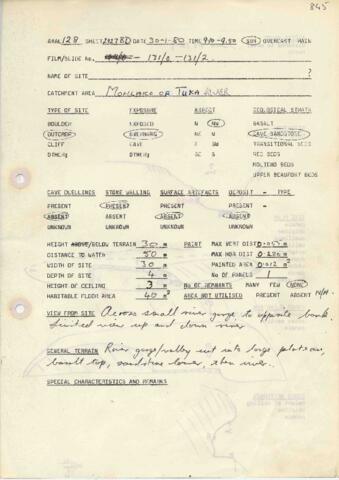 845
ARAL 128 SHEET 2927BD DATE 30-1-80 TIME 910-9.50 SUN OVERCAST RAIN
FILM/SLIDE NO. - 131/0 - 131/2
NAME OF SITE ?
CATCHMENT AREA MOHLAKA OA TUKA RIVER
TYPE OF SITE EXPOSURE ASPECT GEOLOGICAL STRATA
BOULDER EXPOSED N NW BASALT
OUTCROP OVERHANG NE W CAVE SANDSTONE
CLIFF CAVE E SW TRANSITIONAL BEDS
OTHER: OTHER: SE S RED BEDS
MOLTENO BEDS
UPPER BEAUFORT BEDS
CAVE DWELLINGS STONE WALLING SURFACE ARTEFACTS DEPOSIT - TYPE
PRESENT PRESENT PRESENT PRESENT
ABSENT ABSENT ABSENT ABSENT
UNKNOWN UNKNOWN UNKNOWN UNKNOWN
HEIGHT ABOVE/BELOW TERRAIN 30 m PAINT MAX VERT DIST 0.055 m
DISTANCE TO WATER 50 m MAX HOR DIST 0.220 m
WIDTH OF SITE 30 m PAINTED AREA 0.012 m²
DEPTH OF SITE 4 m NO OF PANELS 1
HEIGHT OF CEILING 3 m NO OF REMNANTS MANY FEW NONE
HABITABLE FLOOR AREA 40 m² AREA NOT UTILISED PRESENT ABSENT N/A
VIEW FROM SITE Across small river gorge to opposite bank.
Limited view up and down river.
GENERAL TERRAIN River gorge/valley cut into large plateau,
basalt top, sandstone lower, then river.
SPECIAL CHARACTERISTICS AND REMARKS